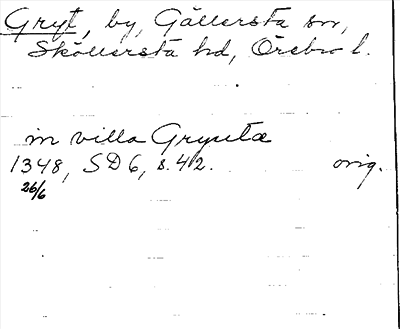 Gryt, by, Gällersta sn,
Sköllersta hd, Örebro l.
in villa Grytæ
1348, SD 6, s. 42. orig.
26/6